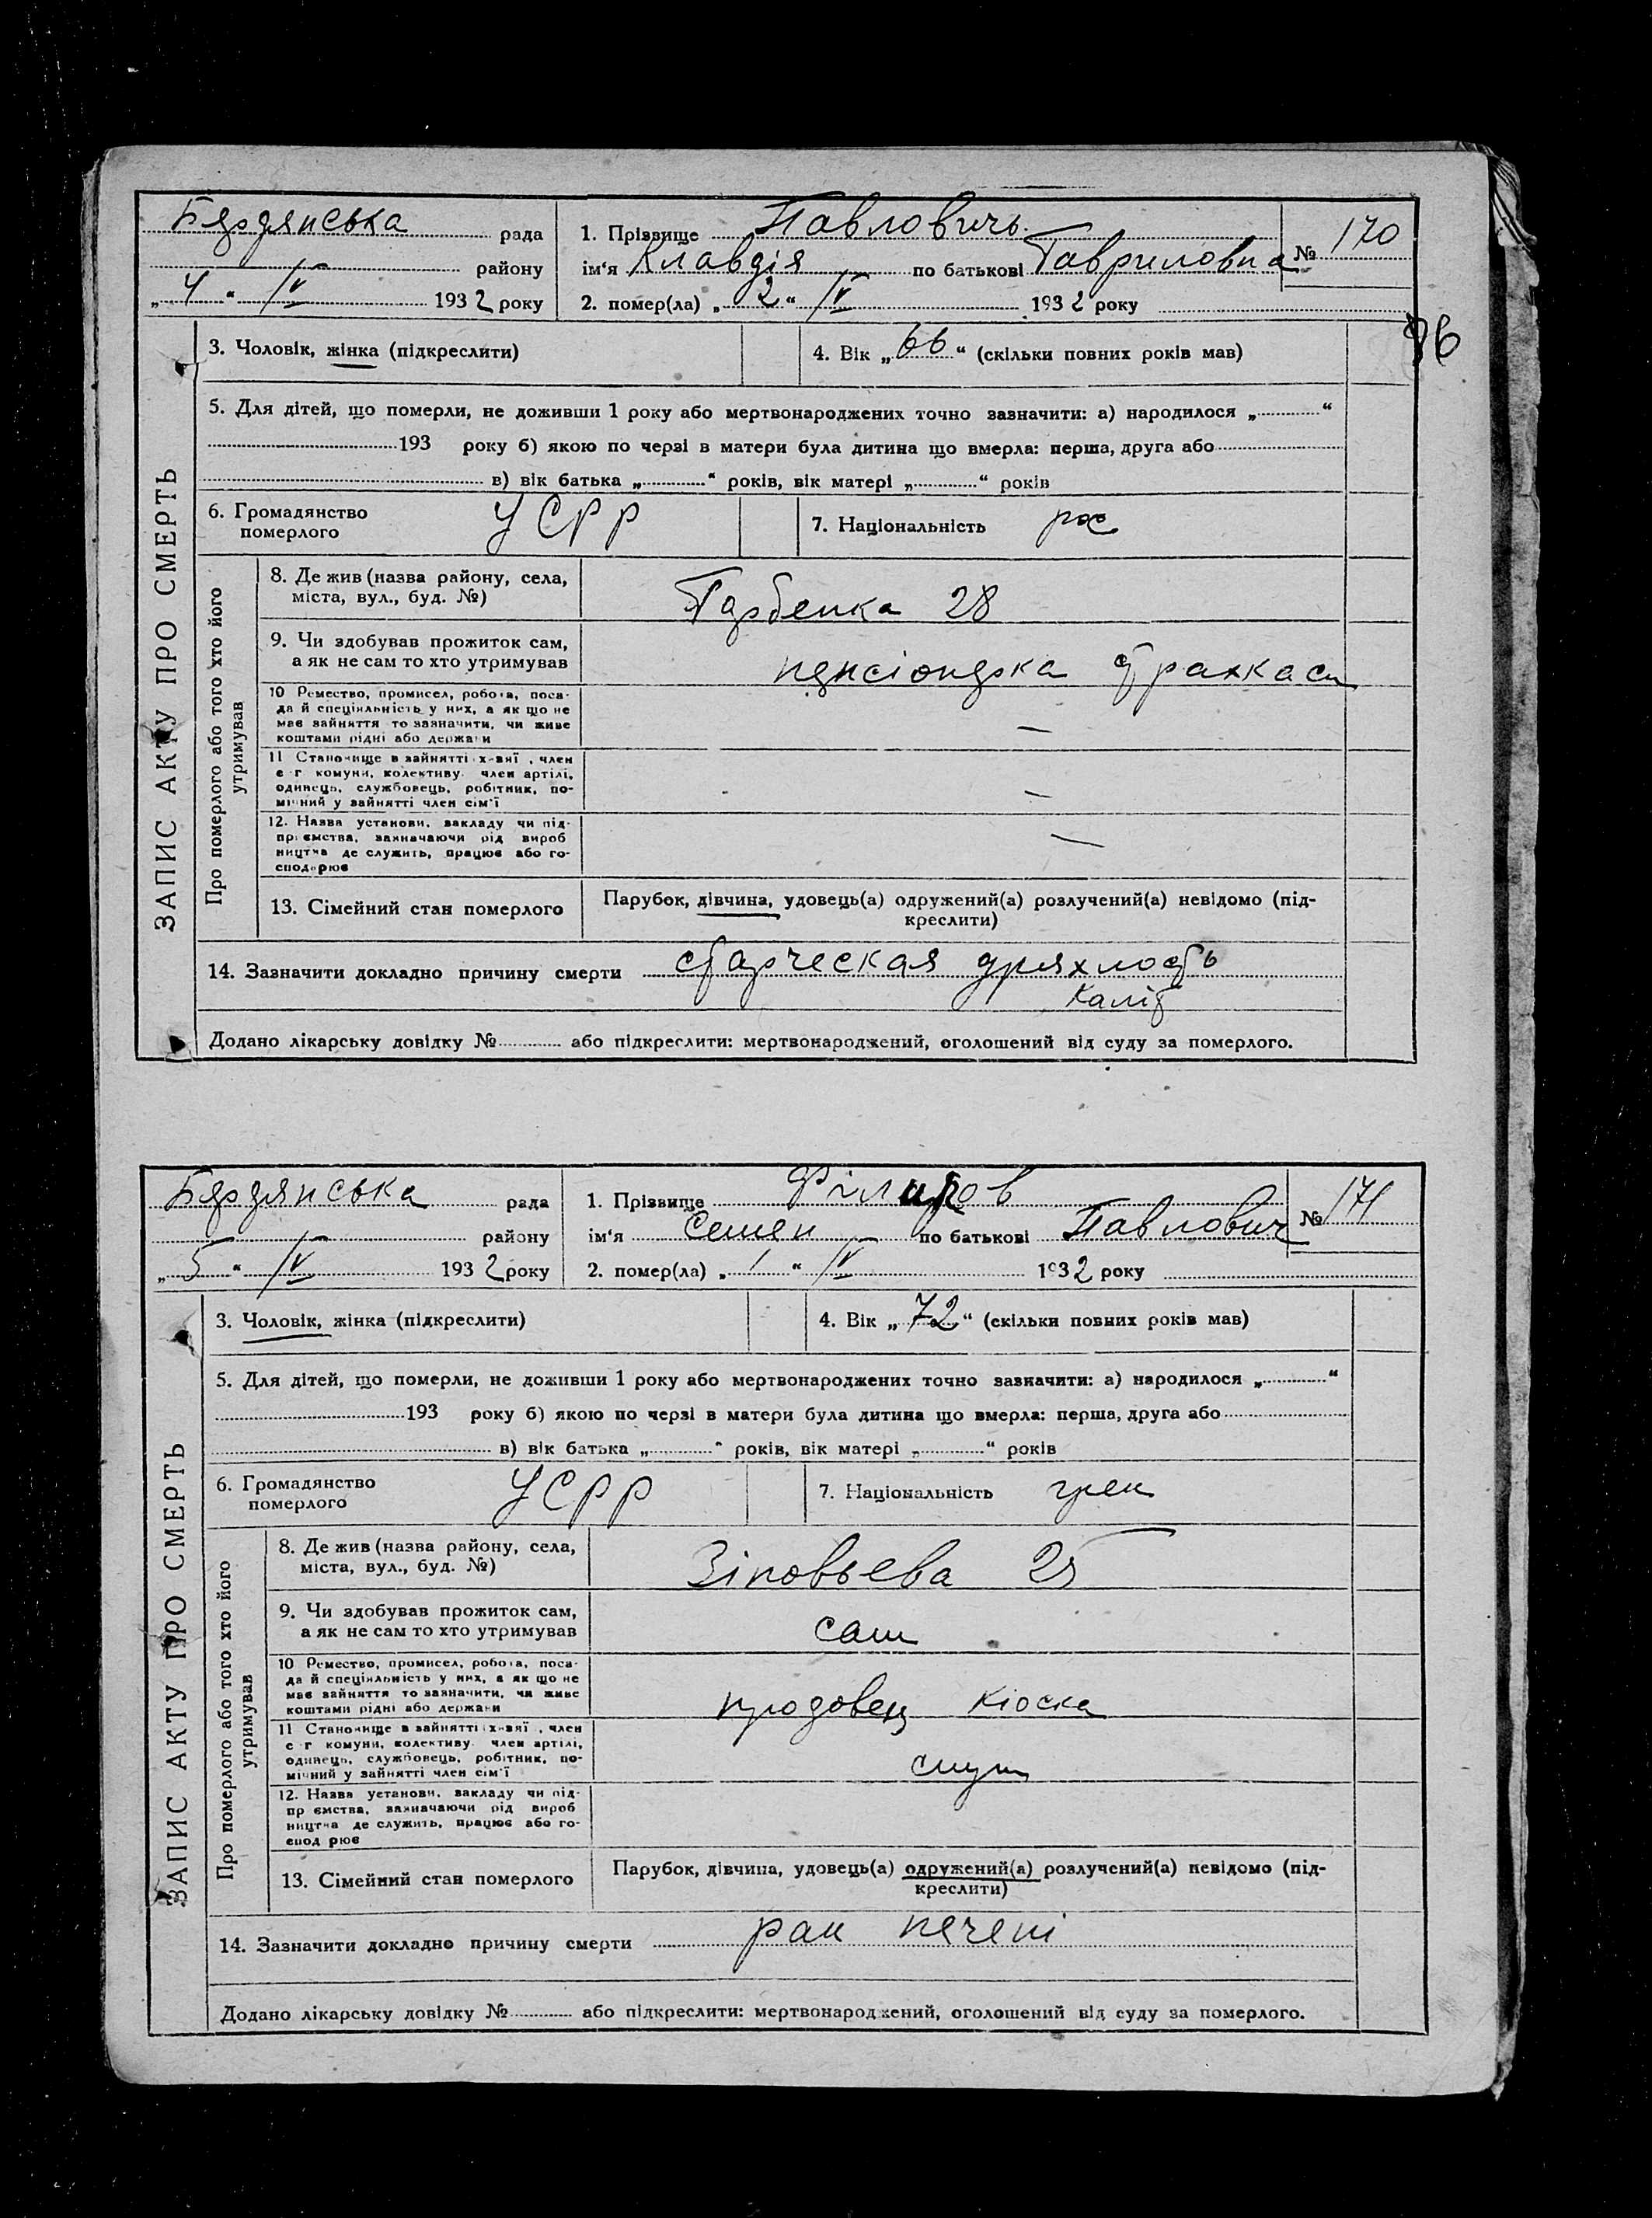 Бердянська рада
району
„4“ IV 1932 року
1. Прізвище Павловичь
ім‘я Клавдія по батькові Гавриловна
№ 170
2. помер(ла) „2“ IV 1932 року
96
3. Чоловік, жінка (підкреслити)
4. Вік „66“ (скільки повних років мав)
5. Для дітей, що померли, не доживши 1 року або мертвонароджених точно зазначити: а) народилося „ “
193 року б) якою по черзі в матери була дитина що вмерла: перша, друга або
в) вік батька „ “ років, вік матері „ “ років
6. Громадянство
померлого
УСРР
7. Національність рос
ЗАПИС АКТУ ПРО СМЕРТЬ
Про померлого або того хто його
утримував
8. Де жив (назва району, села,
міста, вул., буд. №)
28
9. Чи здобував прожиток сам,
а як не сам то хто утримував
пенсіонерка страхкаси
10 Ремество, промисел, робота, поса-
да й спеціяльність у них, а як що не
має зайняття то зазначити, чи живе
коштами рідні або держави
—
11 Становище в зайнятті , член
с г комуни, колективу член артілі,
одинець, службовець, робітник, по-
мічний у зайнятті член сім‘ї
—
12. Назва установи, закладу чи під-
приємства, зазначаючи рід вироб
ництва де служить, працює або го-
сподарює
—
13. Сімейний стан померлого
Парубок, дівчина, удовець(а) одружений(а) розлучений(а) невідомо (під-
креслити)
14. Зазначити докладно причину смерти старческая дряхлость
Додано лікарську довідку № або підкреслити: мертвонароджений, оголошений від суду за померлого.
Бердянська рада
району
„5“ IV 1932 року
1. Прізвище Філипов
ім‘я Семен по батькові Павлович
№ 171
2. помер(ла) „1“ IV 1932 року
3. Чоловік, жінка (підкреслити)
4. Вік „72“ (скільки повних років мав)
5. Для дітей, що померли, не доживши 1 року або мертвонароджених точно зазначити: а) народилося „ “
193 року б) якою по черзі в матери була дитина що вмерла: перша, друга або
в) вік батька „ “ років, вік матері „ “ років
6. Громадянство
померлого
УСРР
7. Національність грек
ЗАПИС АКТУ ПРО СМЕРТЬ
Про померлого або того хто його
утримував
8. Де жив (назва району, села,
міста, вул., буд. №)
Зіновьева 25
9. Чи здобував прожиток сам,
а як не сам то хто утримував
сам
10 Ремество, промисел, робота, поса-
да й спеціяльність у них, а як що не
має зайняття то зазначити, чи живе
коштами рідні або держави
продовец кіоска
11 Становище в зайнятті , член
с г комуни, колективу член артілі,
одинець, службовець, робітник, по-
мічний у зайнятті член сім‘ї
12. Назва установи, закладу чи під-
пр ємства, зазначаючи рід вироб
ництва де служить, працює або го-
спод рює
13. Сімейний стан померлого
Парубок, дівчина, удовець(а) одружений(а) розлучений(а) невідомо (під-
креслити)
14. Зазначити докладно причину смерти рак печені
Додано лікарську довідку № або підкреслити: мертвонароджений, оголошений від суду за померлого.